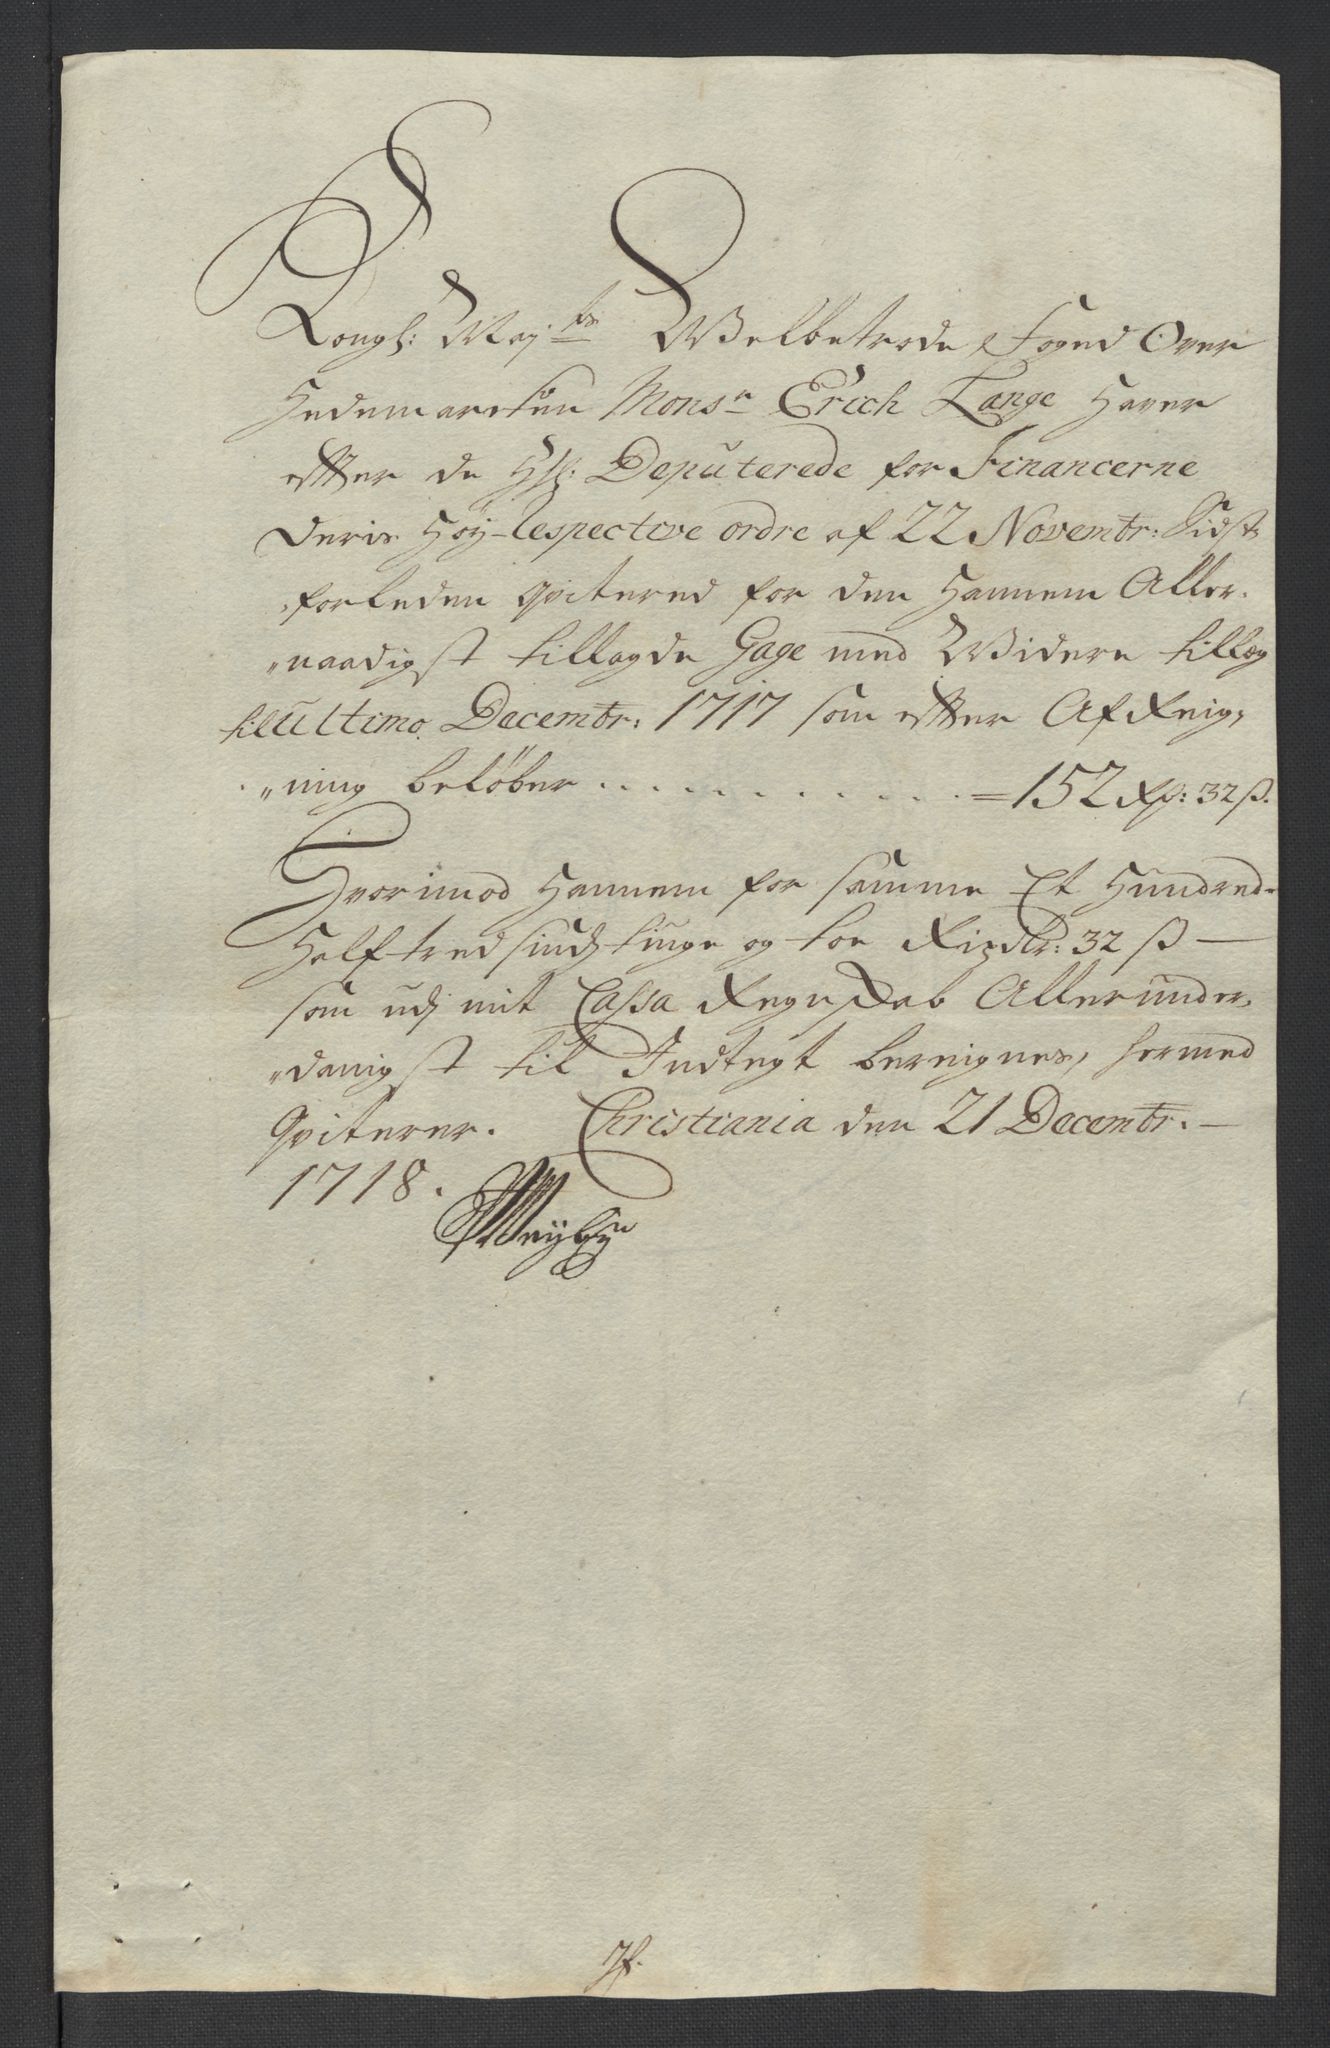 Kongl: Maj:ts Welbetrode Foged Over
Hedemarcken Monsr Erich Lange Haver
efter de HH: Deputerede for Financerne
Deris Høy-Respective ordre af 22 Novembr: Sidst
forleden qvitered for den Hannem Aller-
„naadigst tillagde Gage med Widere tillæg
til ultimo Decembr: 1717 som efter Afreig-
„ning beløber . . . . . . . . . . . = 152 Rd: 32 ß.
Hvorimod Hannem for samme Et Hundred-
Halftredsindstiuge og toe Rixdlr: 32 ß —
som udj mit Cassa Regnskab Allerunder-
„danigst til Indtegt bereignes, hermed
Qviterer. Christiania den 21 Decembr. —
1718.